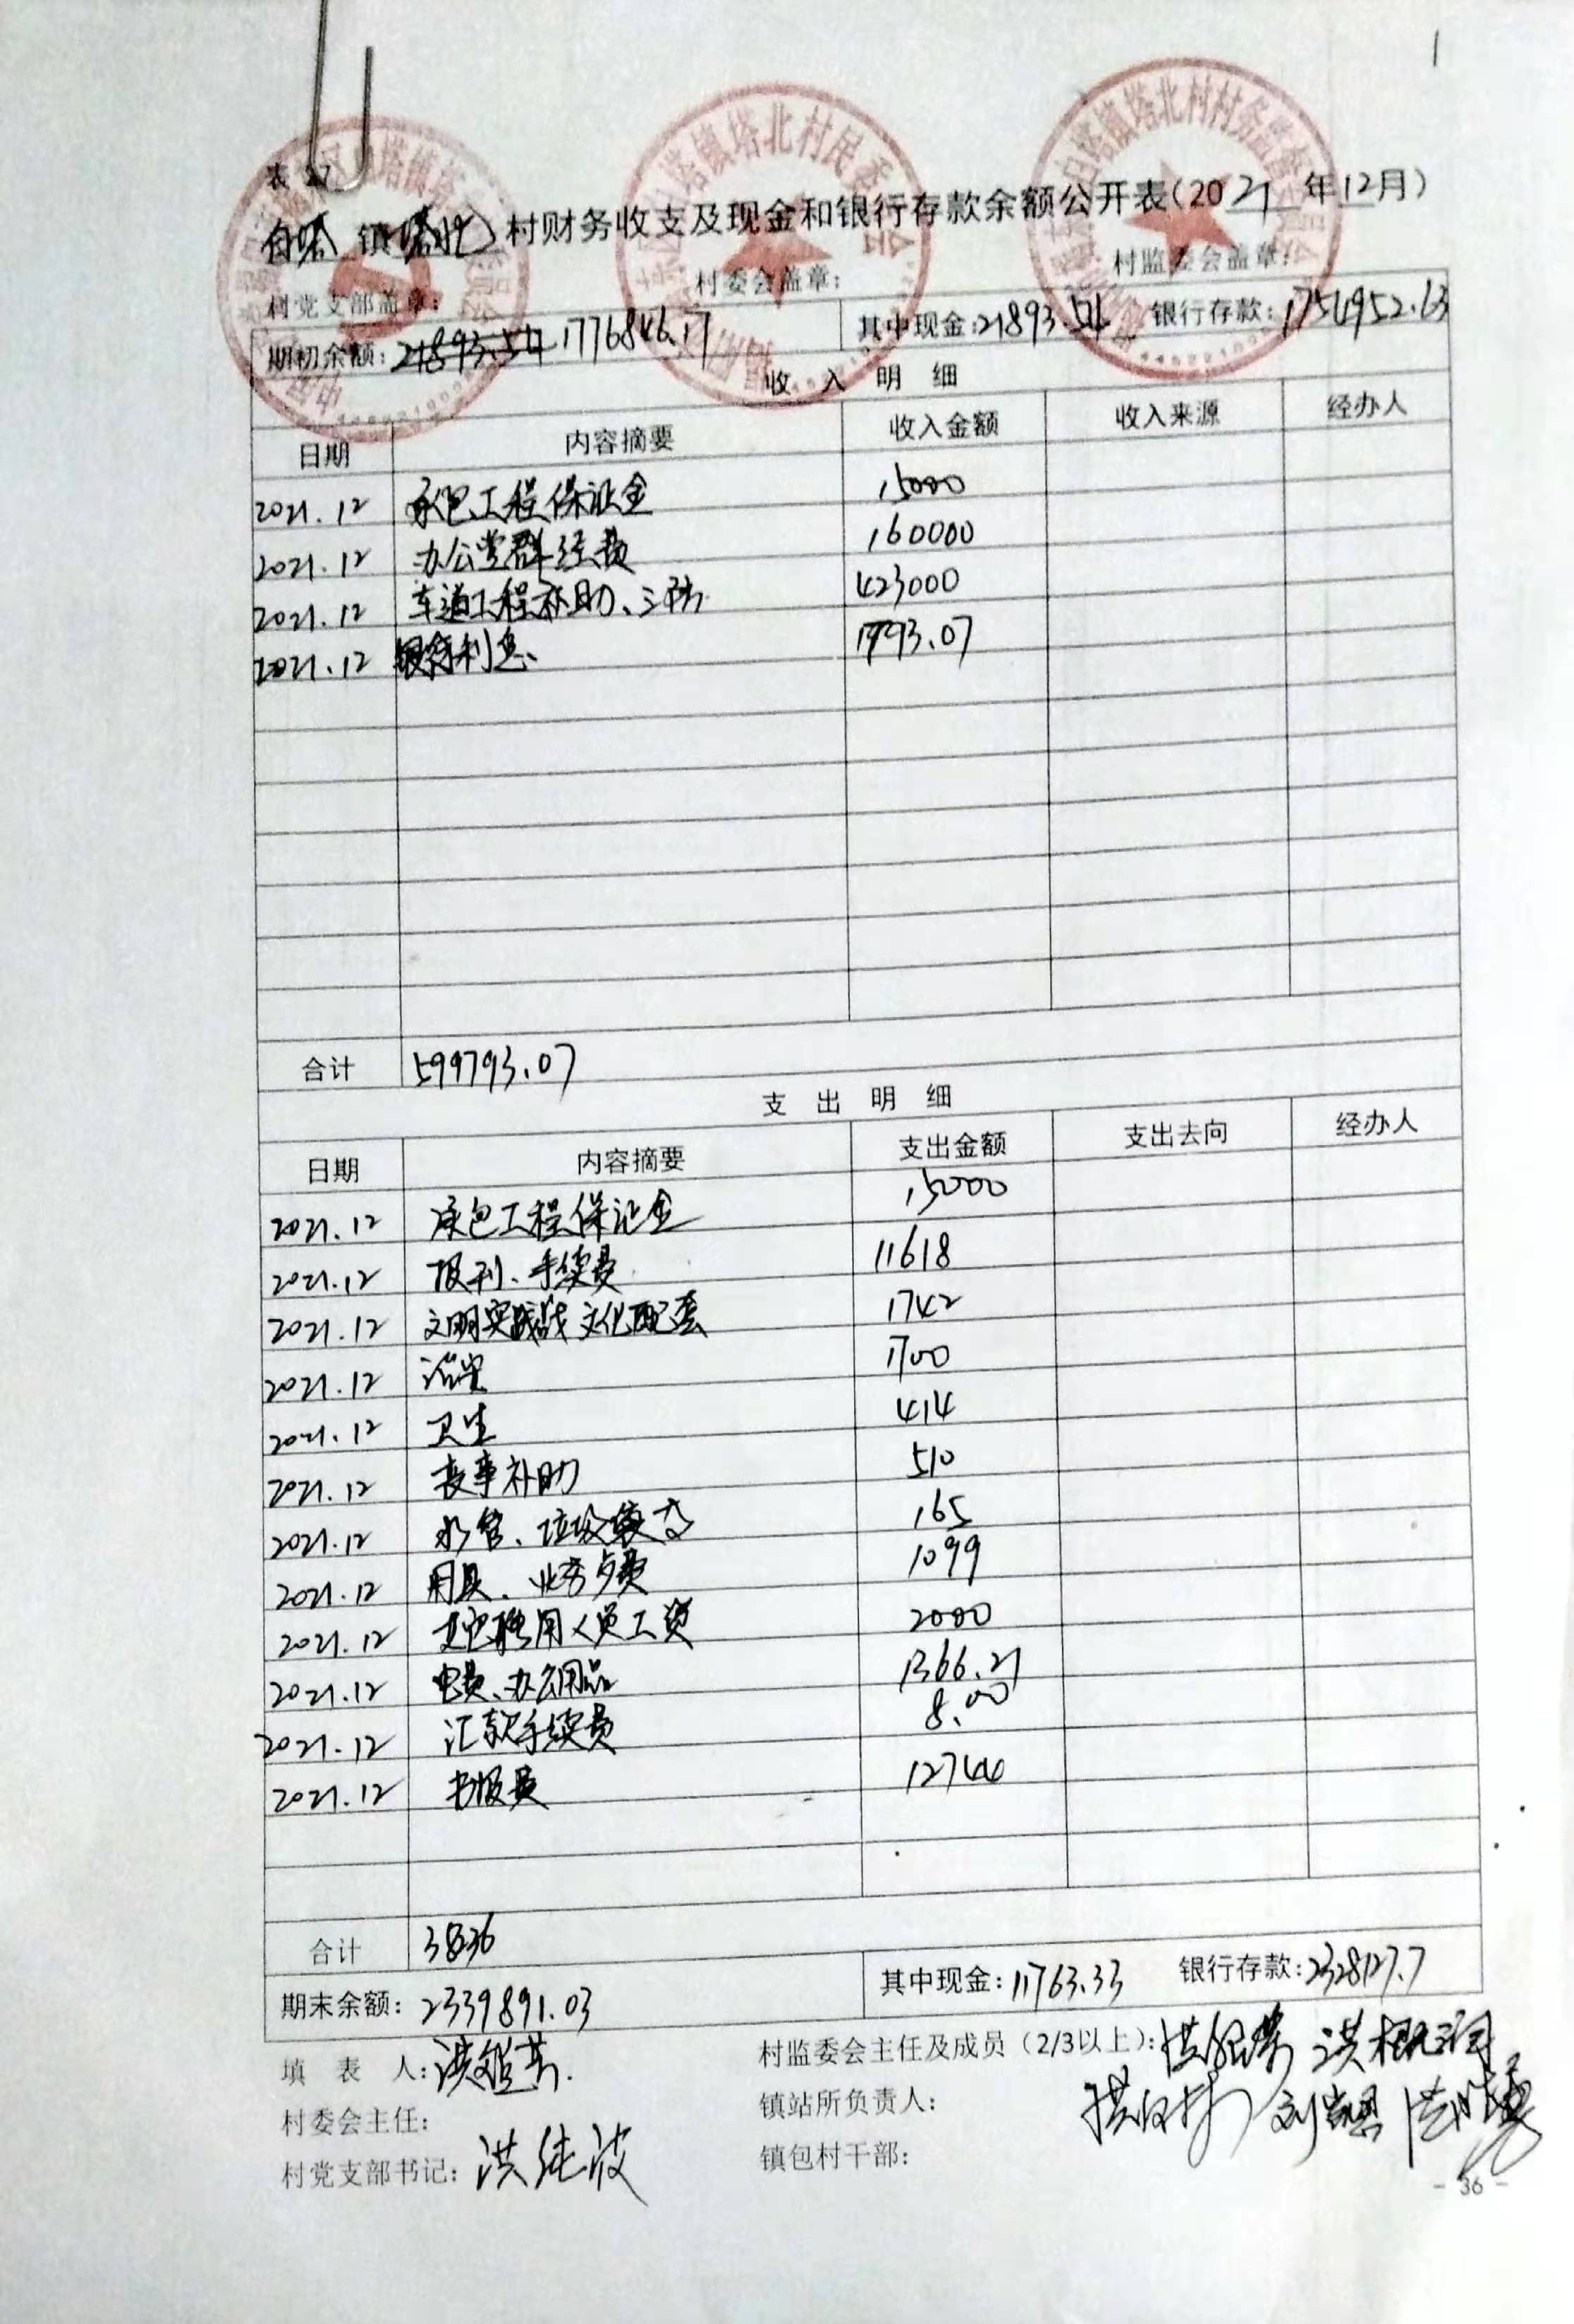 1
表 27
白塔 镇 塔北 村财务收支及现金和银行存款余额公开表(2021 年12月)
村党支部盖章: 村委会盖章: 村监委会盖章:
期初余额: 21893.54 1776846.17 其中现金:21893.54 银行存款:1754952.63
收 入 明 细
日期 内容摘要 收入金额 收入来源 经办人
2021.12 承包工程保证金 15000
2021.12 办公党群经费 160000
2021.12 车道工程补助、三防 423000
2021.12 银行利息、 1793.07
合计 599793.07
支 出 明 细
日期 内容摘要 支出金额 支出去向 经办人
2021.12 承包工程保证金 15000
2021.12 报刊、手续费 11618
2021.12 文明实践站文化配套 1742
2021.12 1700
2021.12 卫生 414
2021.12 丧事补助 510
2021.12 水管、垃圾 165
2021.12 用具、业务 费 1099
2021.12 聘用人员工资 2000
2021.12 电费、办公用品 1366.21
2021.12 汇款手续费 8.00
2021.12 书报费 12744
合计 3836
期末余额: 2339891.03 其中现金:11763.33 银行存款:2328127.7
填 表 人: 村监委会主任及成员（2/3以上):
村委会主任: 镇站所负责人:
村党支部书记: 洪纯波 镇包村干部:
- 36 -